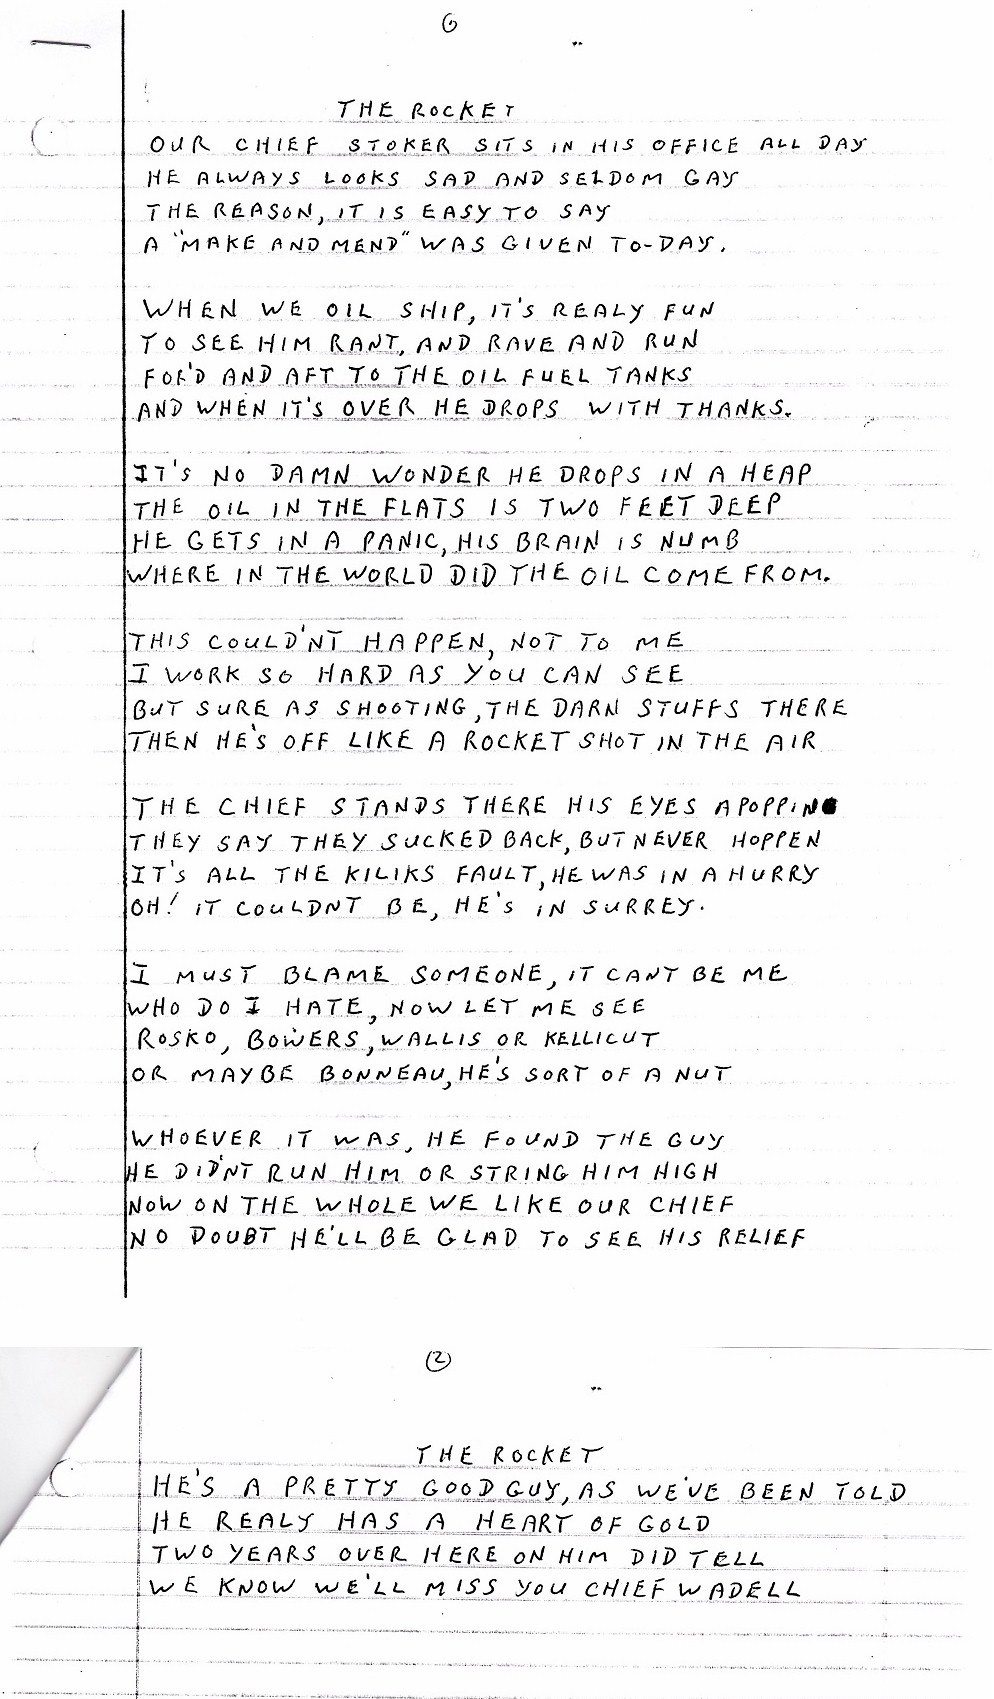 THE ROCKET
OUR CHIEF STOKER SITS IN HIS OFFICE ALL DAY
HE ALWAYS LOOKS SAD AND SELDOM GAY
THE REASON, IT IS EASY TO SAY
A "MAKE AND MEND" WAS GIVEN TO-DAY.
WHEN WE OIL SHIP, IT'S REALY FUN
TO SEE HIM RANT, AND RAVE AND RUN
FOR'D AND AFT TO THE OIL FUEL TANKS
AND WHEN IT'S OVER HE DROPS WITH THANKS.
IT'S NO DAMN WONDER HE DROPS IN A HEAP
THE OIL IN THE FLATS IS TWO FEET DEEP
HE GETS IN A PANIC, HIS BRAIN IS NUMB
WHERE IN THE WORLD DID THE OIL COME FROM.
THIS COULD'NT HAPPEN, NOT TO ME
I WORK SO HARD AS YOU CAN SEE
BUT SURE AS SHOOTING, THE DARN STUFFS THERE
THEN HE'S OFF LIKE A ROCKET SHOT IN THE AIR
THE CHIEF STANDS THERE HIS EYES APOPPING
THEY SAY THEY SUCKED BACK, BUT NEVER HOPPEN
IT'S ALL THE KILIKS FAULT, HE WAS IN A HURRY
OH! IT COULDNT BE, HE'S IN SURREY.
I MUST BLAME SOMEONE, IT CANT BE ME
WHO DO I HATE, NOW LET ME SEE
ROSKO, BOWERS, WALLIS OR KELLICUT
OR MAYBE BONNEAU, HE'S SORT OF A NUT
WHOEVER IT WAS, HE FOUND THE GUY
HE DID'NT RUN HIM OR STRING HIM HIGH
NOW ON THE WHOLE WE LIKE OUR CHIEF
NO DOUBT HE'LL BE GLAD TO SEE HIS RELIEF
2
THE ROCKET
HE'S A PRETTY GOOD GUY, AS WE'VE BEEN TOLD
HE REALY HAS A HEART OF GOLD
TWO YEARS OVER HERE ON HIM DID TELL
WE KNOW WE'LL MISS YOU CHIEF WADELL